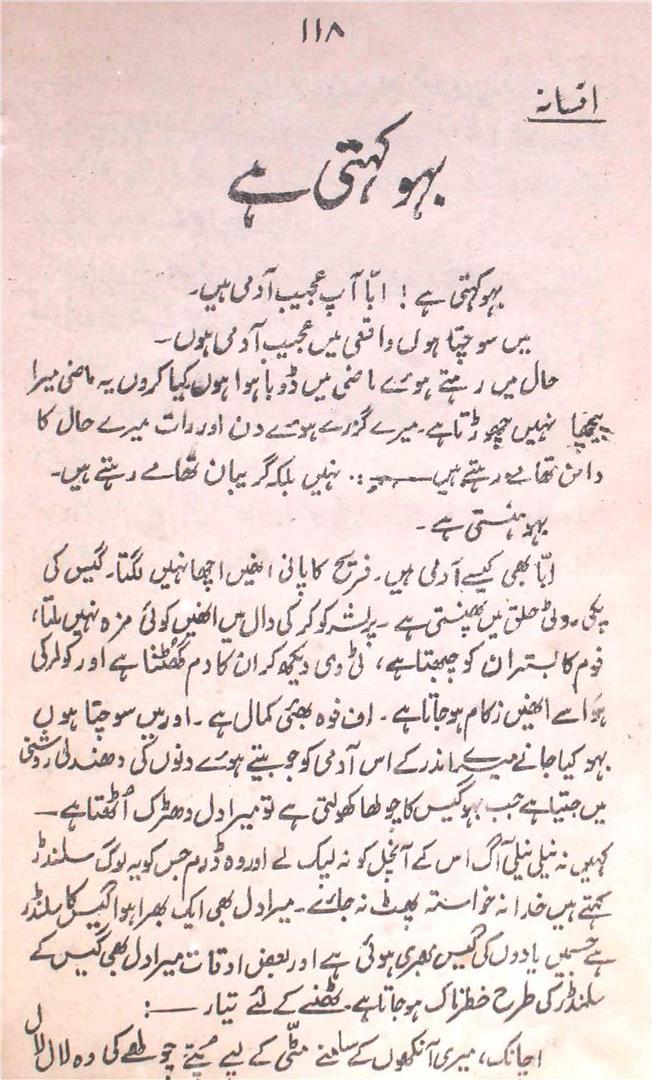 ۱۱۸
افسانہ
بہو کہتی ہے
بہو کہتی ہے! ابّا آپ عجیب آدمی ہیں۔
میں سوچتا ہوں واقعی میں عجیب آدمی ہوں۔
حال میں رہتے ہوئے ماضی میں ڈوبا ہوا ہوں کیا کروں یہ ماضی میرا
پیچھا نہیں چھوڑتا ہے۔ میرے گزرے ہوئے دن اور رات میرے حال کا
دامن تھامے رہتے ہیں ــــــ نہیں بلکہ گریبان تھامے رہتے ہیں۔
بہو ہنستی ہے۔
ابّا بھی کیسے آدمی ہیں۔ فریج کا پانی انھیں اچھا نہیں لگتا۔ گیس کی
پکی روٹی حلق میں پھنستی ہے۔ پریشر کوکر کی دال میں انھیں کوئی مزہ نہیں ملتا،
فوم کا بستر ان کو چبھتا ہے، ٹی وی دیکھ کر ان کا دم گھُٹتا ہے اور کولر کی
ہوا سے انھیں زکام ہو جاتا ہے۔ اف فوہ بھئی کمال ہے۔ اور میں سوچتا ہوں
بہو کیا جانے میرے اندر کے اس آدمی کو جو بیتے ہوئے دنوں کی دھندلی روشنی
میں جیتا ہے جب بہو گیس کا چولھا کھولتی ہے تو میرا دل دھڑک اُٹھتا ہے ــ
کہیں نہ نیلی نیلی آگ اس کے آنچل کو نہ لپک لے اور وہ ڈرم جس کو یہ لوگ سلنڈر
کہتے ہیں خدا نہ خواستہ پھٹ نہ جائے۔ میرا دل بھی ایک بھرا ہوا گیس کا سلنڈر
ہے جسمیں یادوں کی گیس بھری ہوئی ہے اور بعض اوقات میرا دل بھی گیس کے
سلنڈر کی طرح خطرناک ہو جاتا ہے۔ پھٹنے کے لئے تیار ــــ:
اچانک، میری آنکھوں کے سامنے مٹّی کے لیپے پُتے چولھے کی وہ لال لال